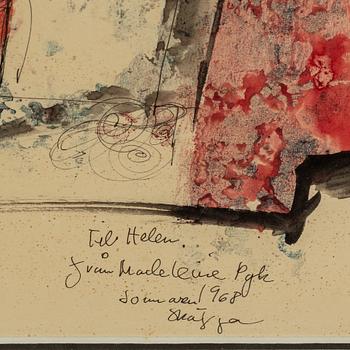 Till Helen.
från Madeleine Pyk
sommaren 1968